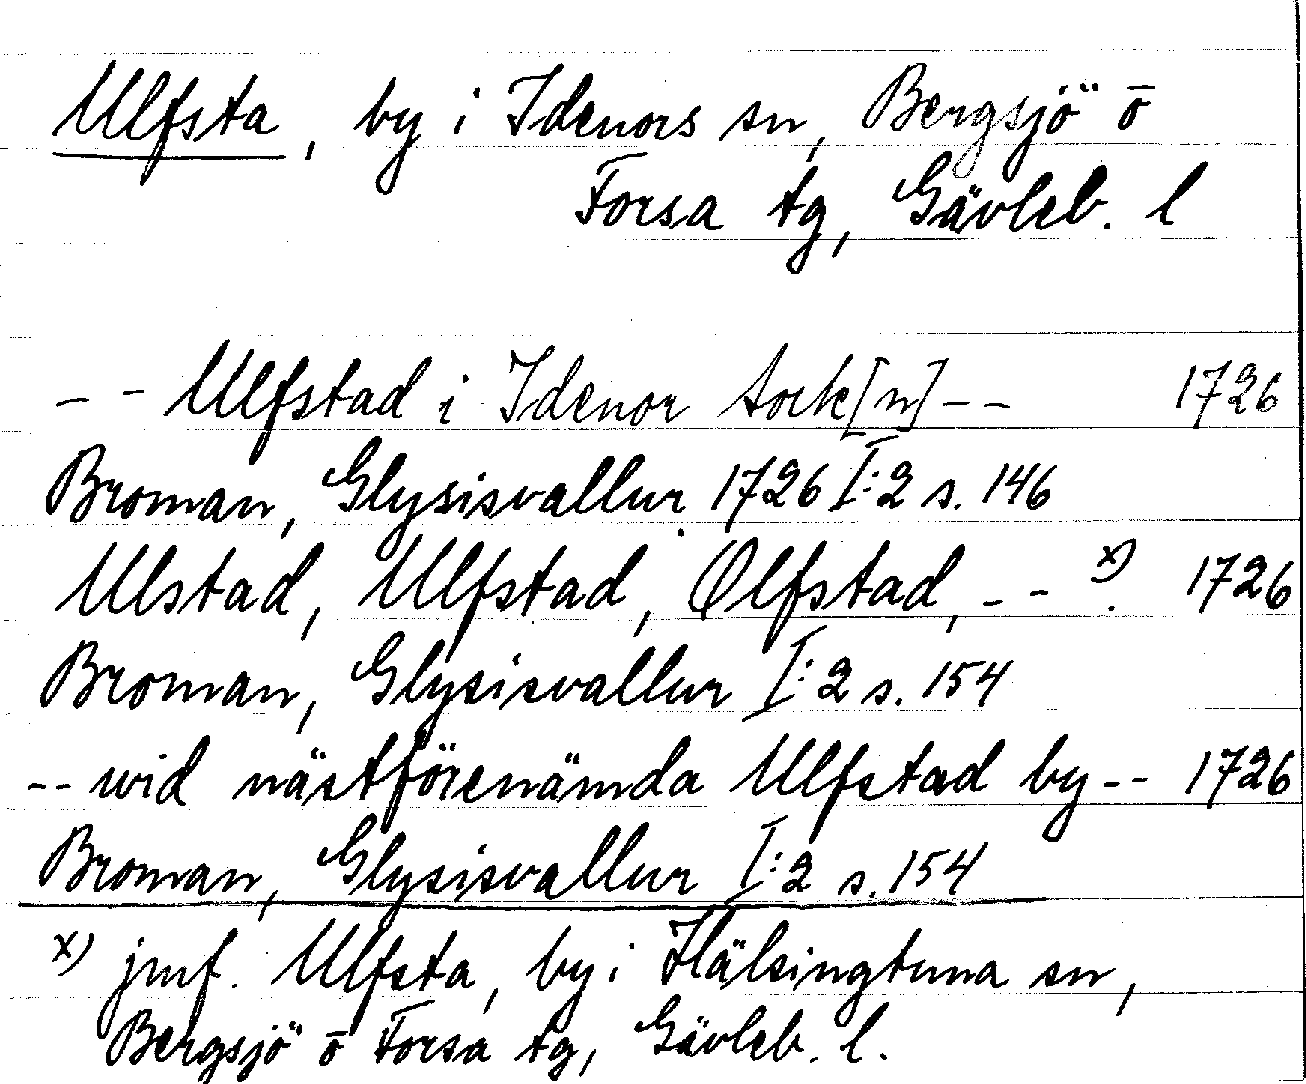 Ulfsta, by i Idenors sn, Bergsjö o̅
Forsa tg, Gävleb. l
- - Ulfstad i Idenor Sock[n] - - 1726
Broman, Glysisvallur 1726 I:2 s. 146
Ulstad, Ulfstad, Olfstad, - - x) 1726
Broman, Glysisvallur I:2 s. 154
- - wid nästförenämda Ulfstad by - - 1726
Broman, Glysisvallur I:2 s. 154
x) jmf. Ulfsta, by i Hälsingtuna sn,
Bergsjö o̅ Forsa tg, Gävleb. l.